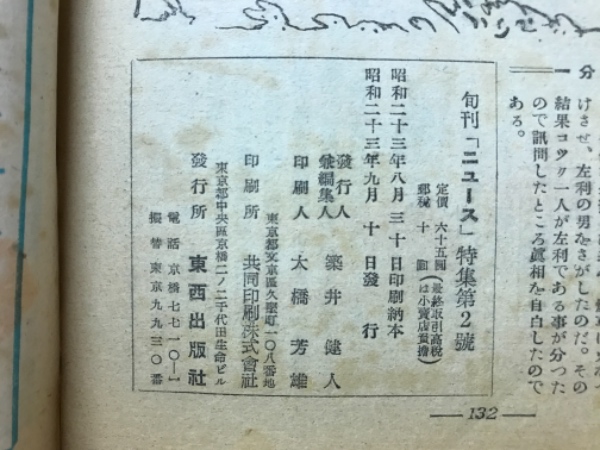 分
一
けさせ、左利の男をさがしたのだ。その
結果コック一人が左利である事が分つた
ので訊問したところ眞相を自白したので
ある。
旬刊「ニュース」特集第2號
定價 六十五圓(最終取引高税
郵税 十圓(は小賣店負擔)
昭和二十三年八月三十日印刷納本
昭和二十三年九月十日發行
發行人
兼編集人 築井健人
印刷人 大橋芳雄
東京都文京區久堅町一〇八番地
印刷所 共同印刷株式會社
東京都中央區京橋二ノ二千代田生命ビル
發行所 東西出版社
電話京橋七七一〇—一
振替東京九九三〇番
— 132 —